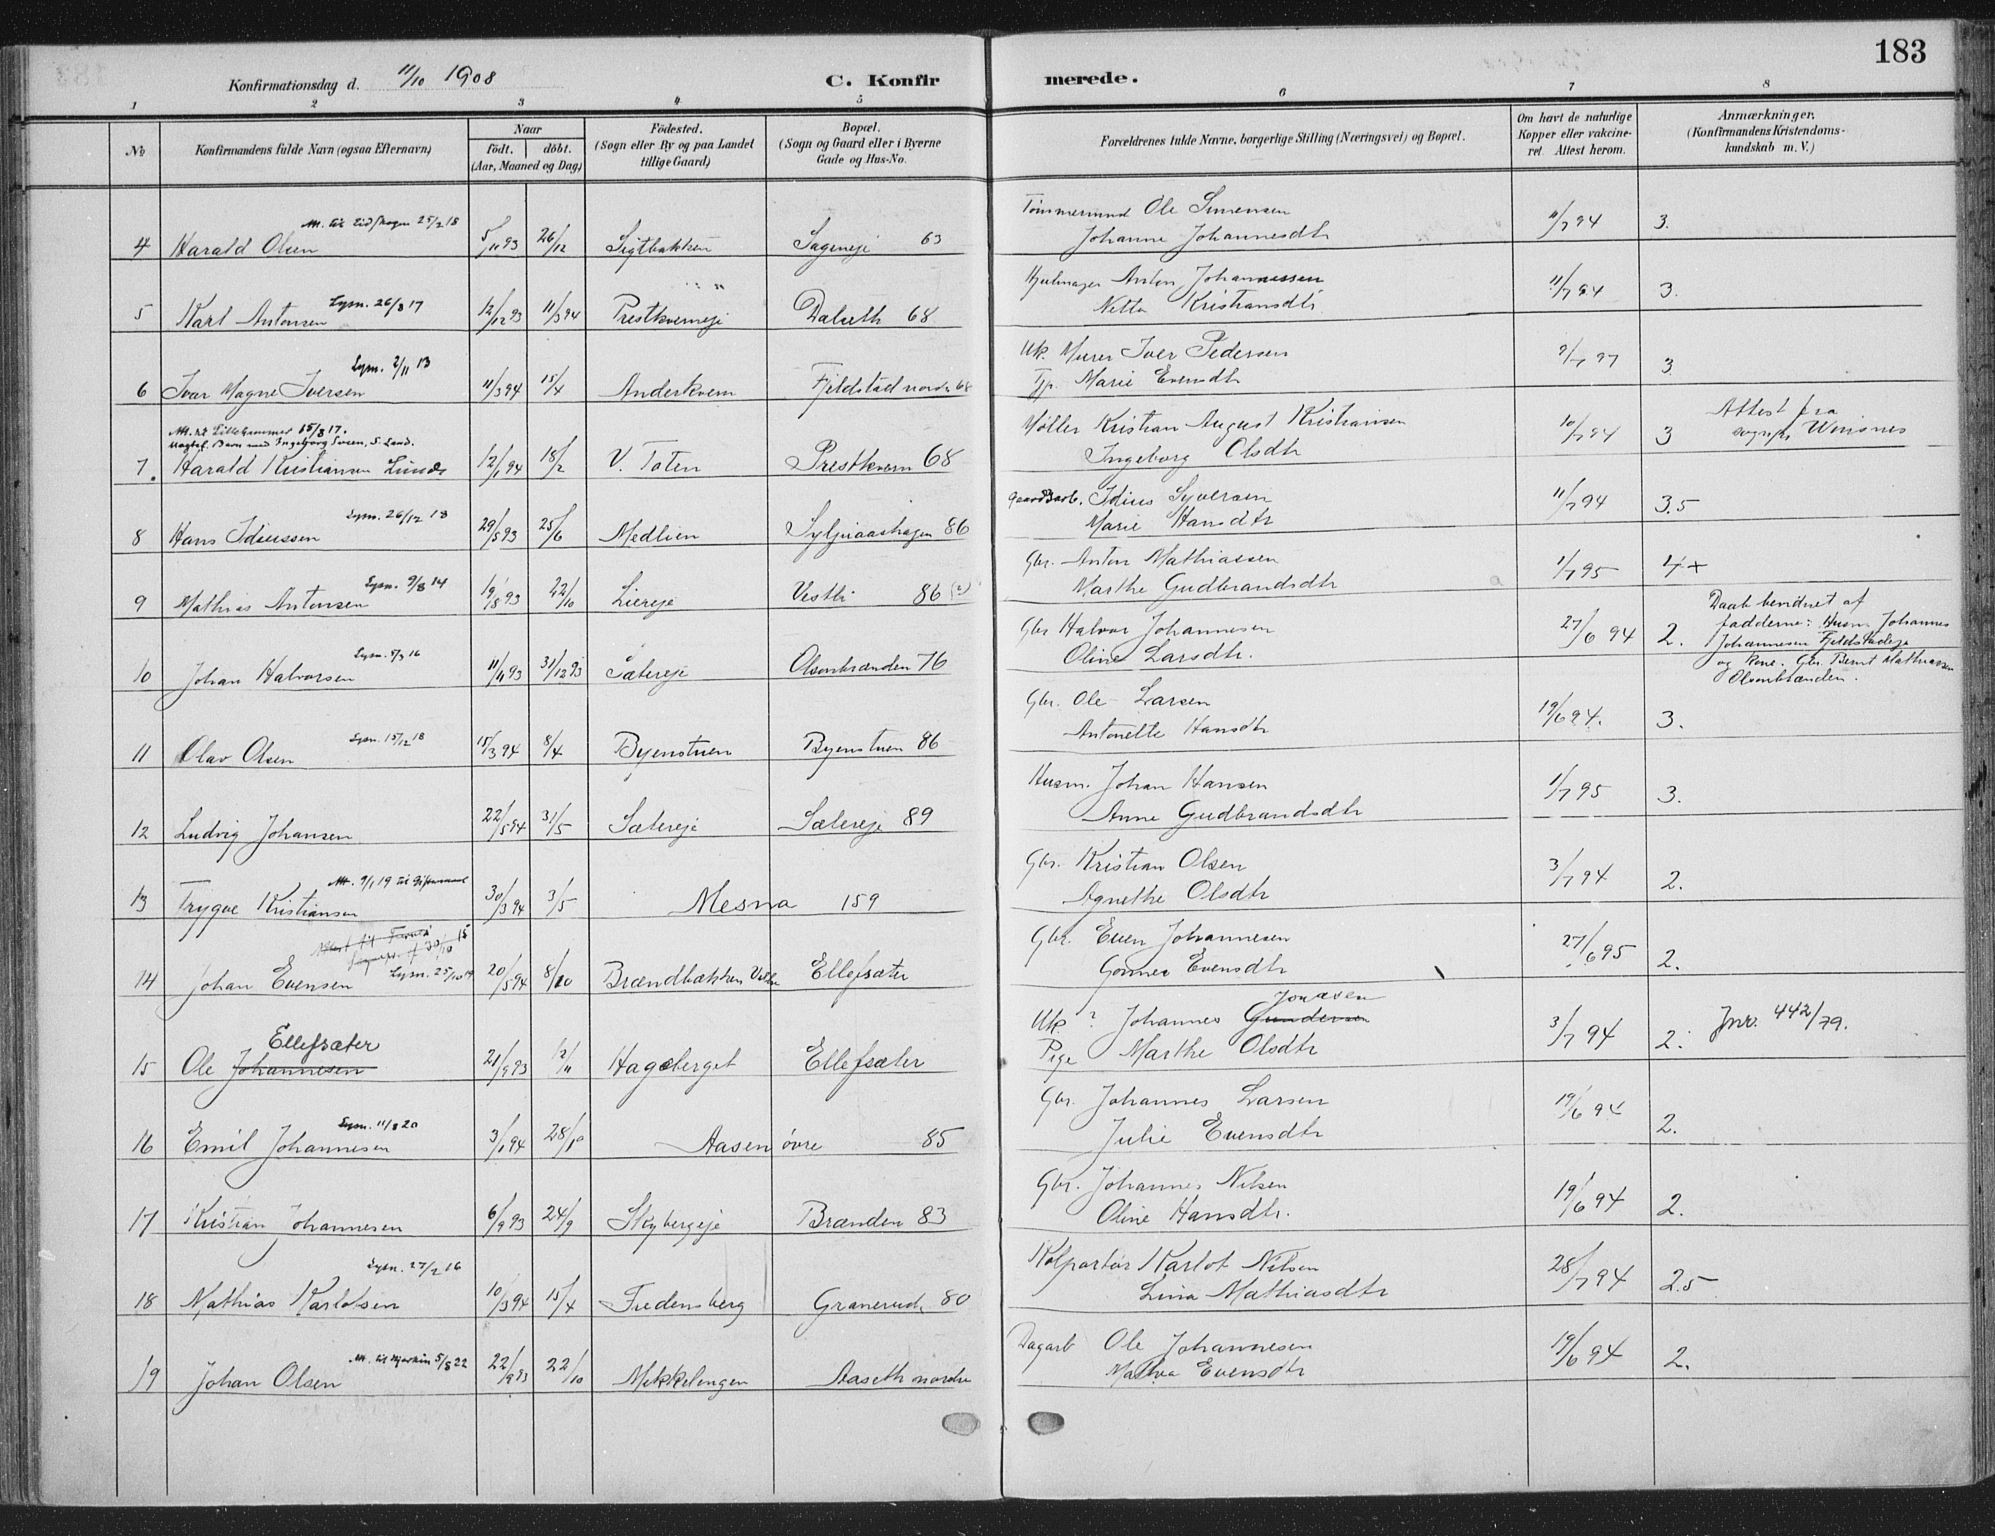 183
Konfirmationsdag d. 11/10 1908 C. Konfirmerede.
1 2 3 4 5 6 7 8
No
Konfirmandens fulde Navn (ogsaa Efternavn)
Naar
födt. döbt.
(Aar, Maaned og Dag)
Födested.
(Sogn eller By og paa Landet
tillige Gaard)
Bopæl.
(Sogn og Gaard eller i Byerne
Gade og Hus-No.
Forældrenes fulde Navne, borgerlige Stilling (Næringsvei) og Bopæl.
Om havt de naturlige
Kopper eller vakcine-
ret. Attest herom.
Anmærkninger.
(Konfirmandens Kristendoms-
kundskab m. V.)
Att. til Eidskogen 25/2 18
4 Harald Olsen 5/11 93 26/12 Sigtbakken Sageneje 63
Tømmermand Ole Simensen
Johanne Johannesdtr
11/7 94 3.
Lysn. 26/8 17
5 Karl Antonsen 12/12 93 11/3 94 Prestkverneje Dalseth 68
Hjulmager Anton Johannessen
Netta Kristiansdtr
11/7 94 3.
Lysn. 2/11 13
6 Ivar Magne Iversen 11/3 94 15/4 Anderkvern Fjeldstad nordr 68
Uk. Murer Iver Pedersen
Tjp. Marie Evensdtr
9/7 97 3
Att. til Lillehammer 15/8 17.
Uægtef. Barn med Ingeborg Sveen, S. Land.
7. Harald Kristiansen Lunde 12/1 94 18/2 V. Toten Prestkvern 68
Møller Kristian August Kristiansen
Ingeborg Olsdtr
10/7 94 3 Attest fra
sognepr. Winsnes
Lysn. 26/12 18
8 Hans Idiussen 29/5 93 25/6 Medlien Syljuaashagen 86
Gaardsarb. Idius Syversen
Marie Hansdtr
11/7 94 3.5
Lysn. 9/8 14
9 Mathias Antonsen 19/8 93 22/10 Liereje Vestli 86 (2)
Gbr. Anton Mathiassen
Marthe Gudbrandsdtr
1/7 95 4+
Lysn. 5/3 16
10 Johan Halvorsen 11/11 93 31/12 93 Sætereje Olsenbrænden 76
Gbr Halvor Johannesen
Oline Larsdtr.
27/6 94 2.
Daab bevidnet af
fadderne: Husm. Johannes
Johannesen Fjeldstadeje
og Kone. Gbr. Bernt Mathiassen
Olsenbrænden.
Lysn. 15/12 18
11 Olav Olsen 15/3 94 8/4 Byenstuen Byenstuen 86
Gbr. Ole Larsen
Antonette Hansdtr
19/6 94. 3.
12 Ludvig Johansen 22/5 94 31/5 Sætereje Sætereje 89
Husm. Johan Hansen
Anne Gudbrandsdtr
1/7 95 3.
Att. 9/1 19 til Giftermaal
13 Trygve Kristiansen 30/3 94 3/5 Mesna 159
Gbr. Kristian Olsen
Agnethe Olsdtr
3/7 94 2.
Lysn. 25/10 19
14 Johan Evensen 20/5 94 8/10 Brændbakken Ellefsæter
Gbr. Even Johannesen
Gonnes Evensdtr
27/6 95 2.
Ellefsæter
15 Ole Johannesen 21/9 93 12/11 Hageberget Ellefsæter
Jonasen
Uk ? Johannes Gundersen
Pige Marthe Olsdtr
3/7 94 2. Jnr. 442/79.
Lysn. 11/8 20
16 Emil Johannesen 3/1 94 28/10 Aasen øvre 85
Gbr. Johannes Larsen
Julie Evensdtr
19/6 94 2.
17 Kristian Johannesen 6/9 93 24/9 Skybergeje Brænden 83
Gbr. Johannes Nilsen
Oline Hansdtr.
19/6 94 2.
Lysn. 27/2 16
18 Mathias Karlotsen 10/3 94 15/4 Fredensberg Granerud 80
Kolportør Karlot Nilsen
Lina Mathiasdtr
28/7 94 2.5
Att. til Hjerkin 5/8 22
19 Johan Olsen 22/9 93 22/10 Mekkelengen Aaseth nordre
Dagarb Ole Johannesen
Mathea Evensdtr
19/6 94 2.